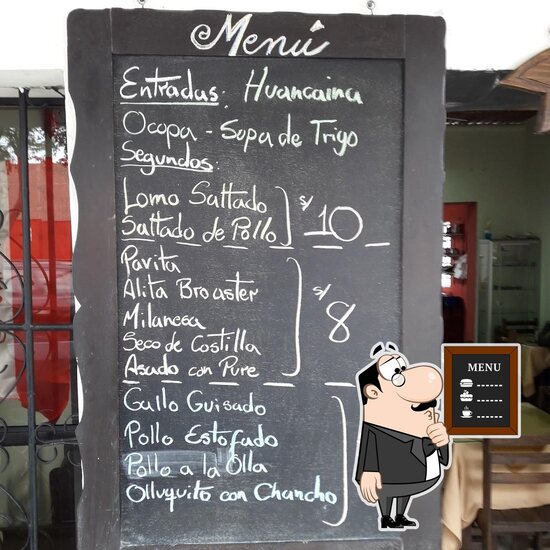 Menú
Entradas: Huancaina
Ocopa - Sopa de Trigo
Segundos:
Lomo Saltado
Saltado de Pollo
s/ 10
Pavita
Alita Broaster
Milanesa
Seco de Costilla
Asado con Pure
s/ 8
Gallo Guisado
Pollo Estofado
Pollo a la Olla
Olluquito con Chancho
MENU